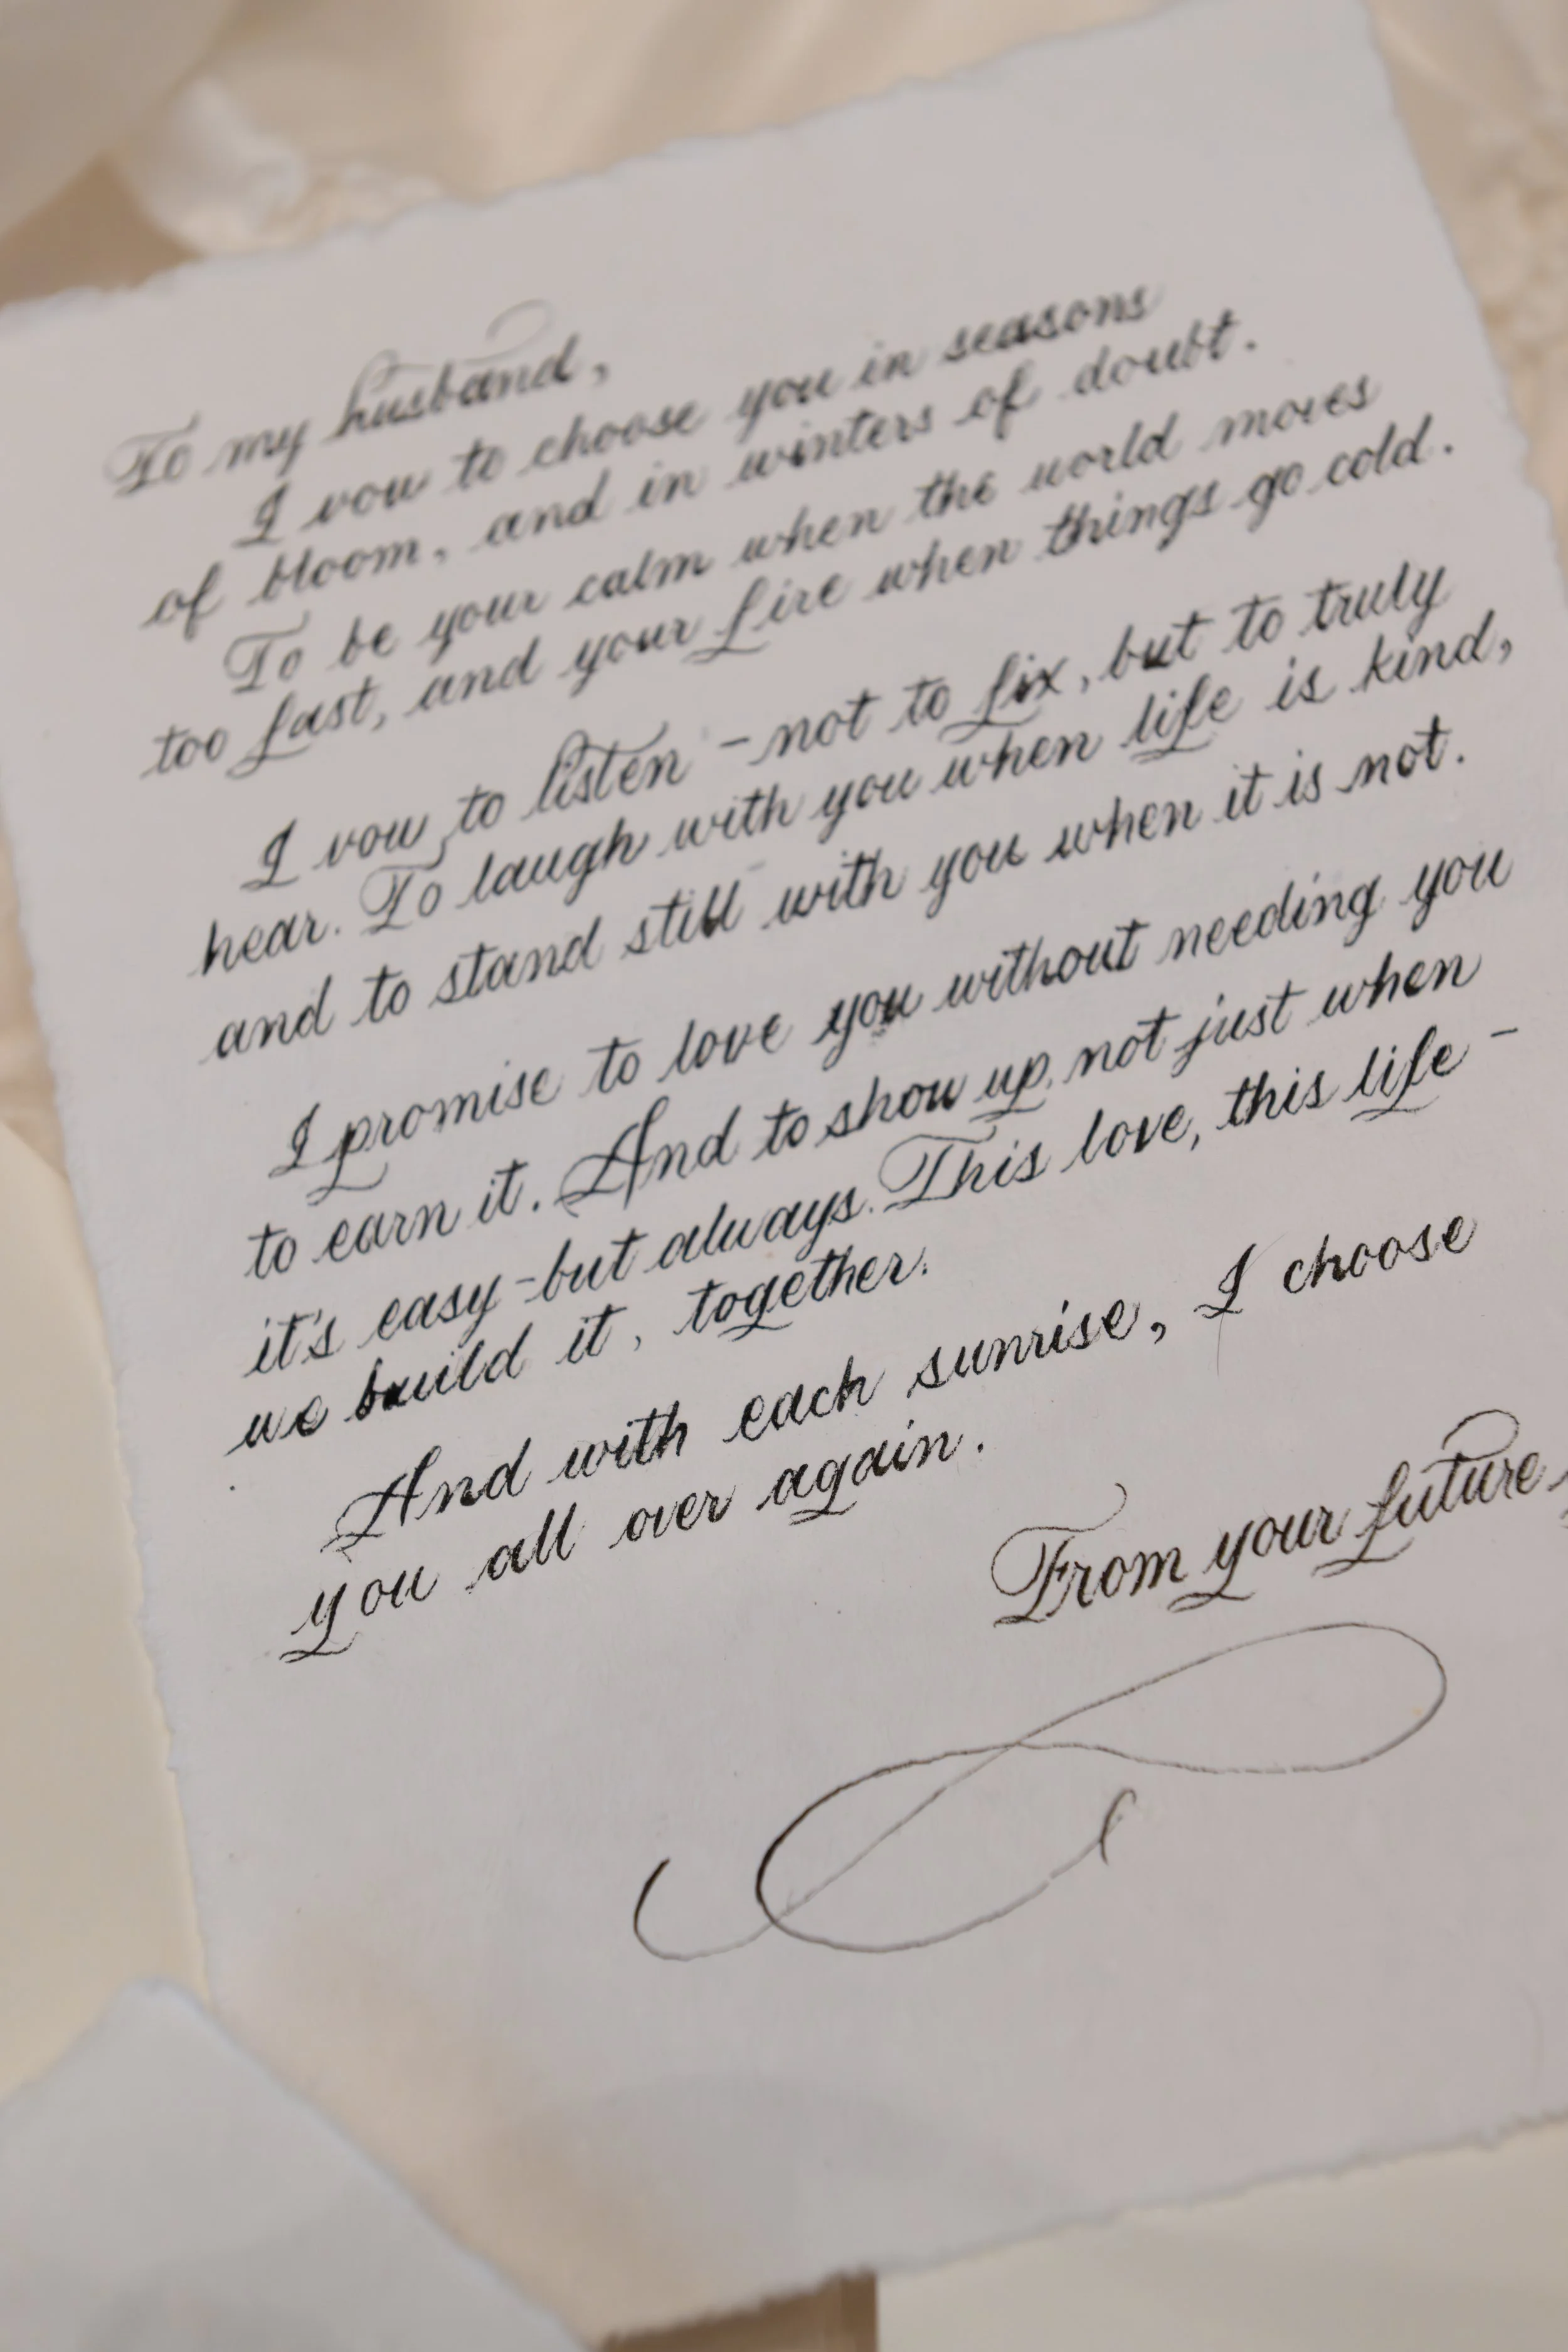 To my husband,
I vow to choose you in seasons
of bloom, and in winters of doubt.
To be your calm when the world moves
too fast, and your fire when things go cold.
I vow to listen - not to fix, but to truly
hear. To laugh with you when life is kind,
and to stand still with you when it is not.
I promise to love you without needing you
to earn it. And to show up, not just when
it's easy - but always. This love, this life -
we build it, together.
And with each sunrise, I choose
you all over again.
From your future